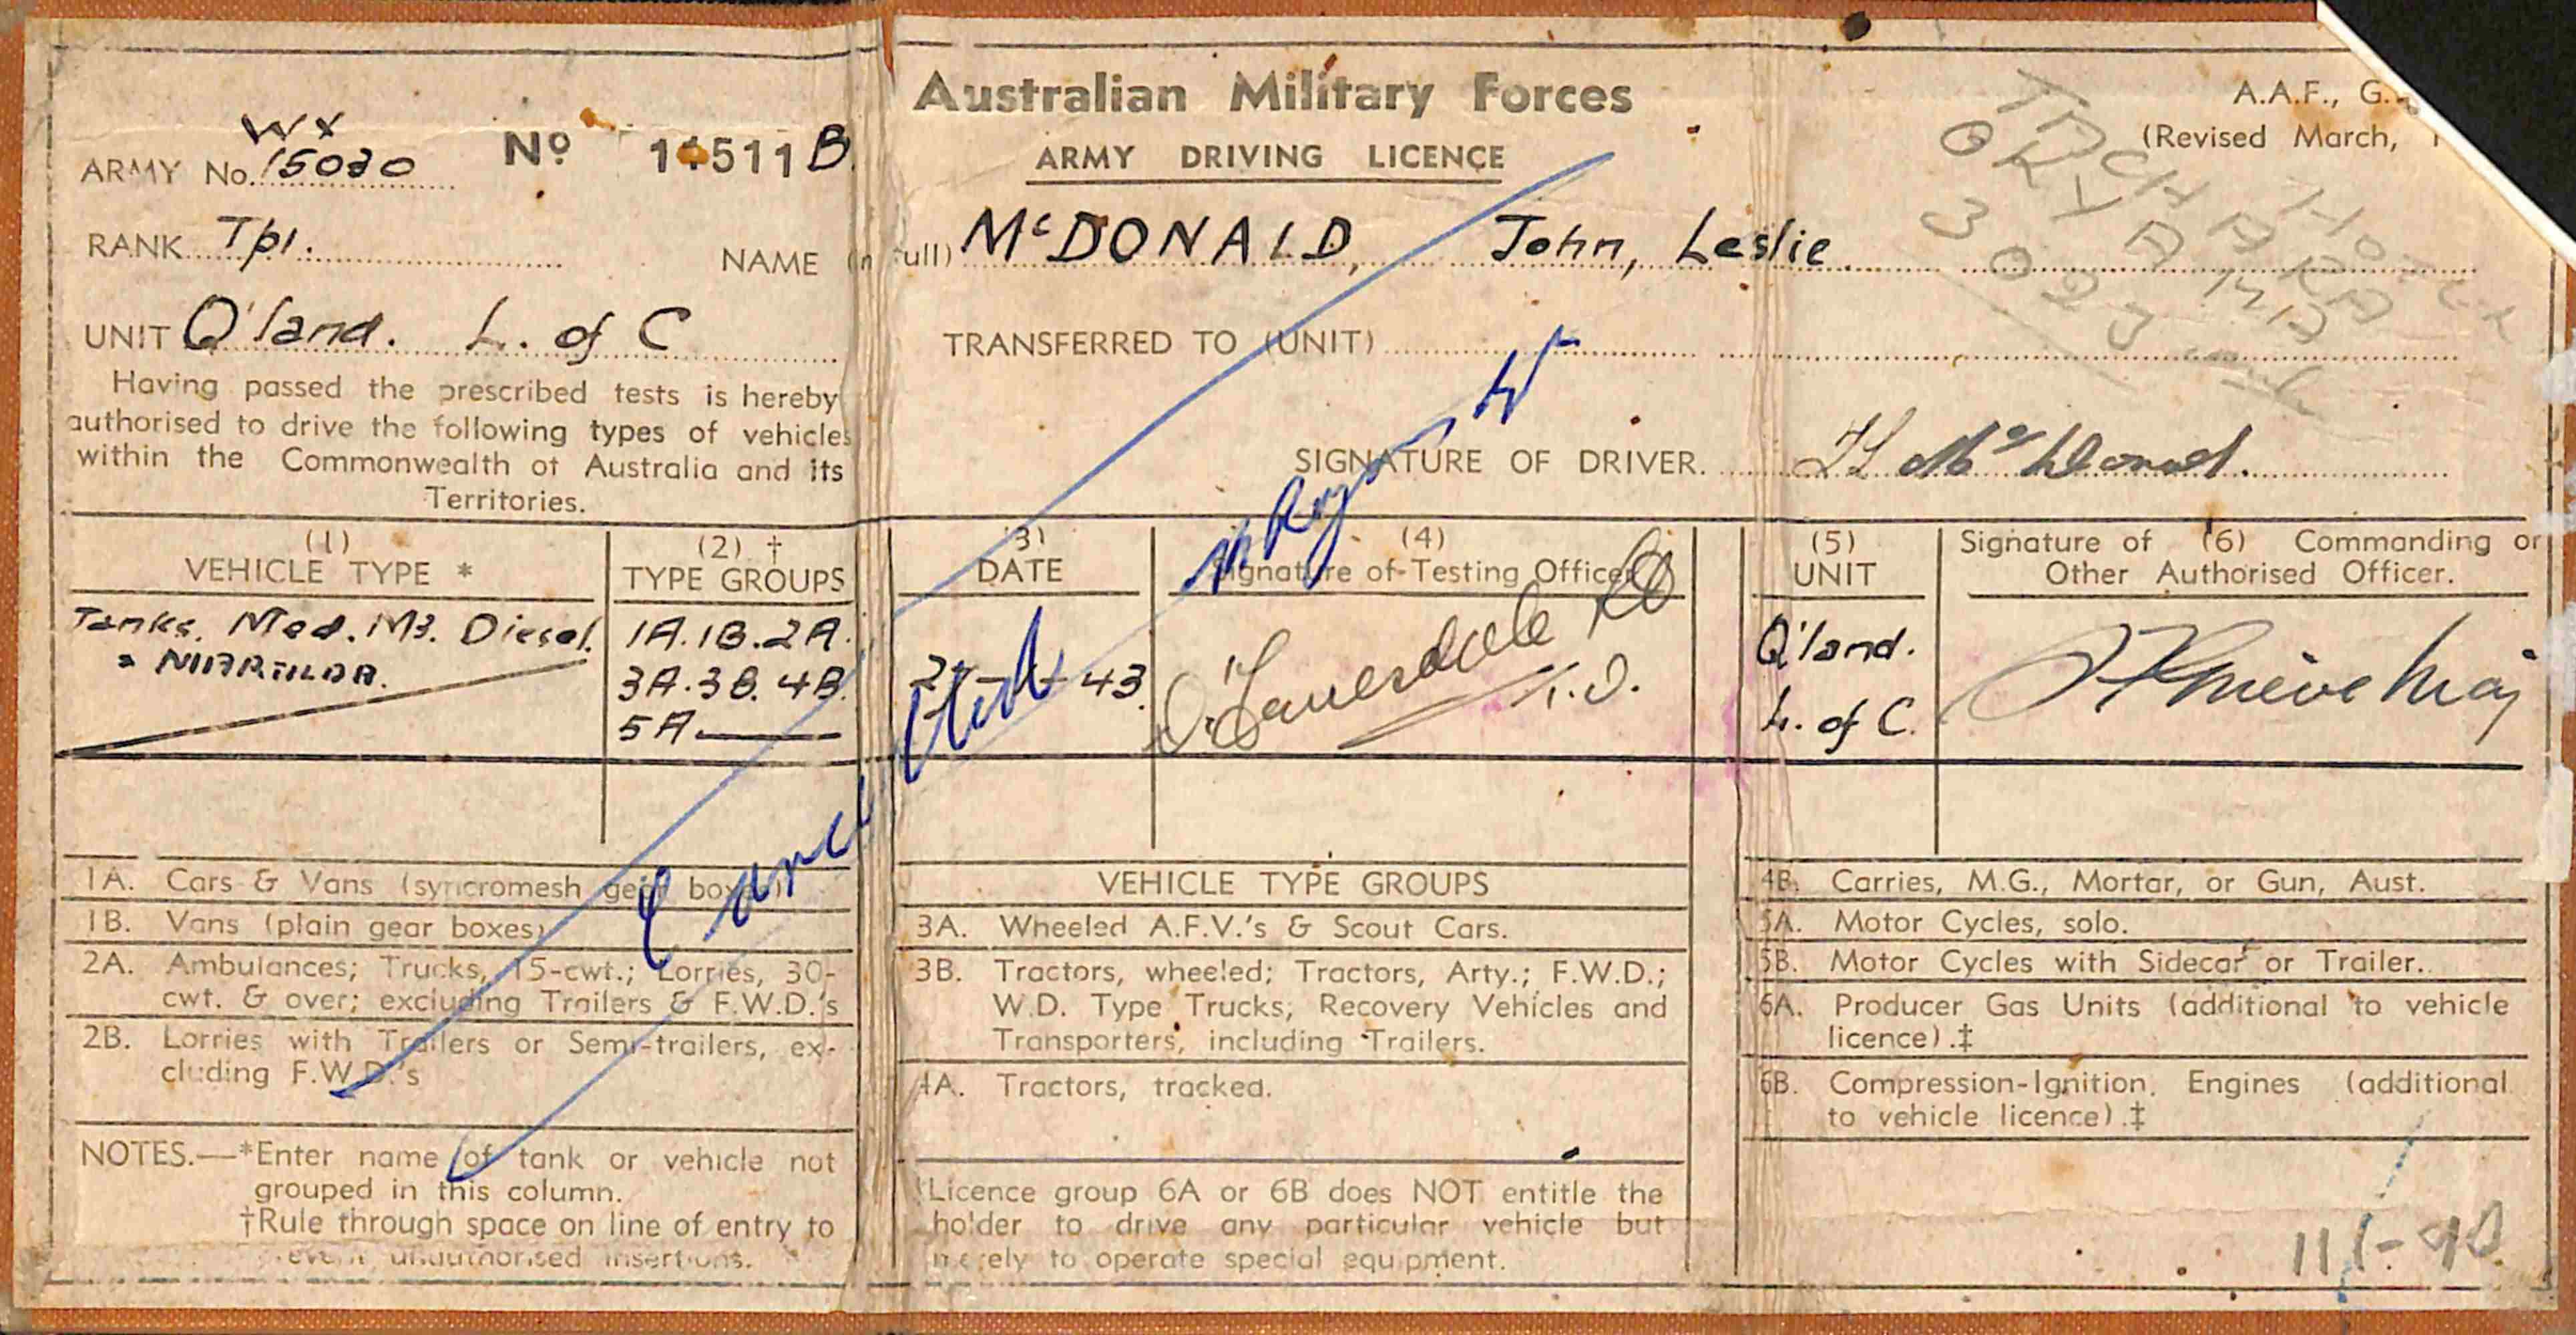 Australian Military Forces
A.A.F., G.
(Revised March,
ARMY DRIVING LICENCE
WX
ARMY No. 15030
No 14511 B.
RANK Tpr.
NAME (in full) McDONALD, John, Leslie
UNIT Q'land. L. of C
TRANSFERRED TO (UNIT)
Having passed the prescribed tests is hereby
authorised to drive the following types of vehicles
within the Commonwealth of Australia and its
Territories.
SIGNATURE OF DRIVER. JL McDonald.
(1)
VEHICLE TYPE *
(2) †
TYPE GROUPS
(3)
DATE
(4)
Signature of Testing Officer
(5)
UNIT
Signature of (6) Commanding or
Other Authorised Officer.
Tanks. Med. M3. Diesel.
" MATILDA.
1A.1B.2A.
3A.3B.4B.
5A
43.
Q'land.
L. of C.
Maj
Cancelled
1A. Cars & Vans (syncromesh gear boxes)
1B. Vans (plain gear boxes)
2A. Ambulances; Trucks, 15-cwt.; Lorries, 30-
cwt. & over; excluding Trailers & F.W.D.'s
2B. Lorries with Trailers or Semi-trailers, ex-
cluding F.W.D.'s
VEHICLE TYPE GROUPS
3A. Wheeled A.F.V.'s & Scout Cars.
3B. Tractors, wheeled; Tractors, Arty.; F.W.D.;
W.D. Type Trucks; Recovery Vehicles and
Transporters, including Trailers.
4A. Tractors, tracked.
4B. Carries, M.G., Mortar, or Gun, Aust.
5A. Motor Cycles, solo.
5B. Motor Cycles with Sidecar or Trailer.
6A. Producer Gas Units (additional to vehicle
licence).‡
6B. Compression-Ignition Engines (additional
to vehicle licence).‡
NOTES.—*Enter name of tank or vehicle not
grouped in this column.
†Rule through space on line of entry to
prevent unauthorised insertions.
‡Licence group 6A or 6B does NOT entitle the
holder to drive any particular vehicle but
merely to operate special equipment.